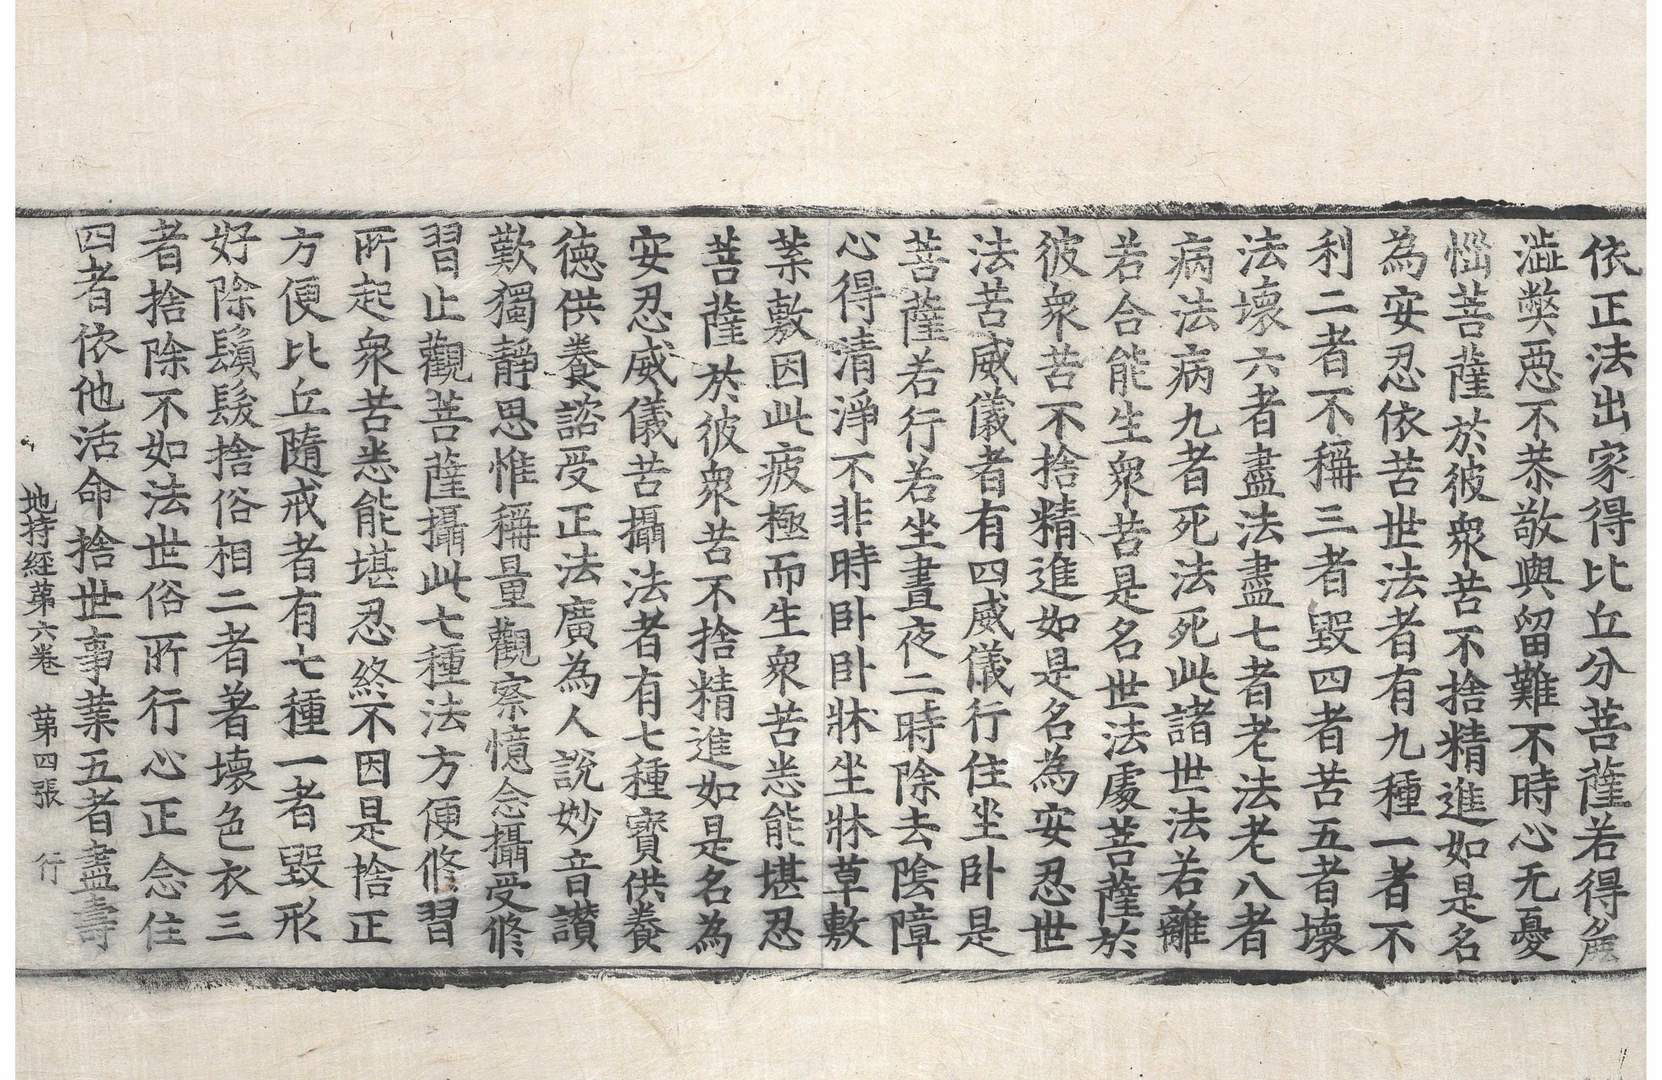 依正法出家得比丘分菩薩若得麁
澁弊惡不恭敬與留難不時心无憂
惱菩薩於彼衆苦不捨精進如是名
為安忍依苦世法者有九種一者不
利二者不稱三者毀四者苦五者壞
法壞六者盡法盡七者老法老八者
病法病九者死法死此諸世法若離
若合能生衆苦是名世法處菩薩於
彼衆苦不捨精進如是名為安忍世
法苦威儀者有四威儀行住坐卧是
菩薩若行若坐晝夜二時除去陰障
心得清淨不非時卧卧牀坐牀草敷
葉敷因此疲極而生衆苦悉能堪忍
菩薩於彼衆苦不捨精進如是名為
安忍威儀苦攝法者有七種寶供養
德供養諮受正法廣為人說妙音讃
歎獨靜思惟稱量觀察憶念攝受修
習止觀菩薩攝此七種法方便修習
所起衆苦悉能堪忍終不因是捨正
方便比丘隨戒者有七種一者毀形
好除鬚髮捨俗相二者著壞色衣三
者捨除不如法世俗所行心正念住
四者依他活命捨世事業五者盡壽
地持經第六卷　第四張　行